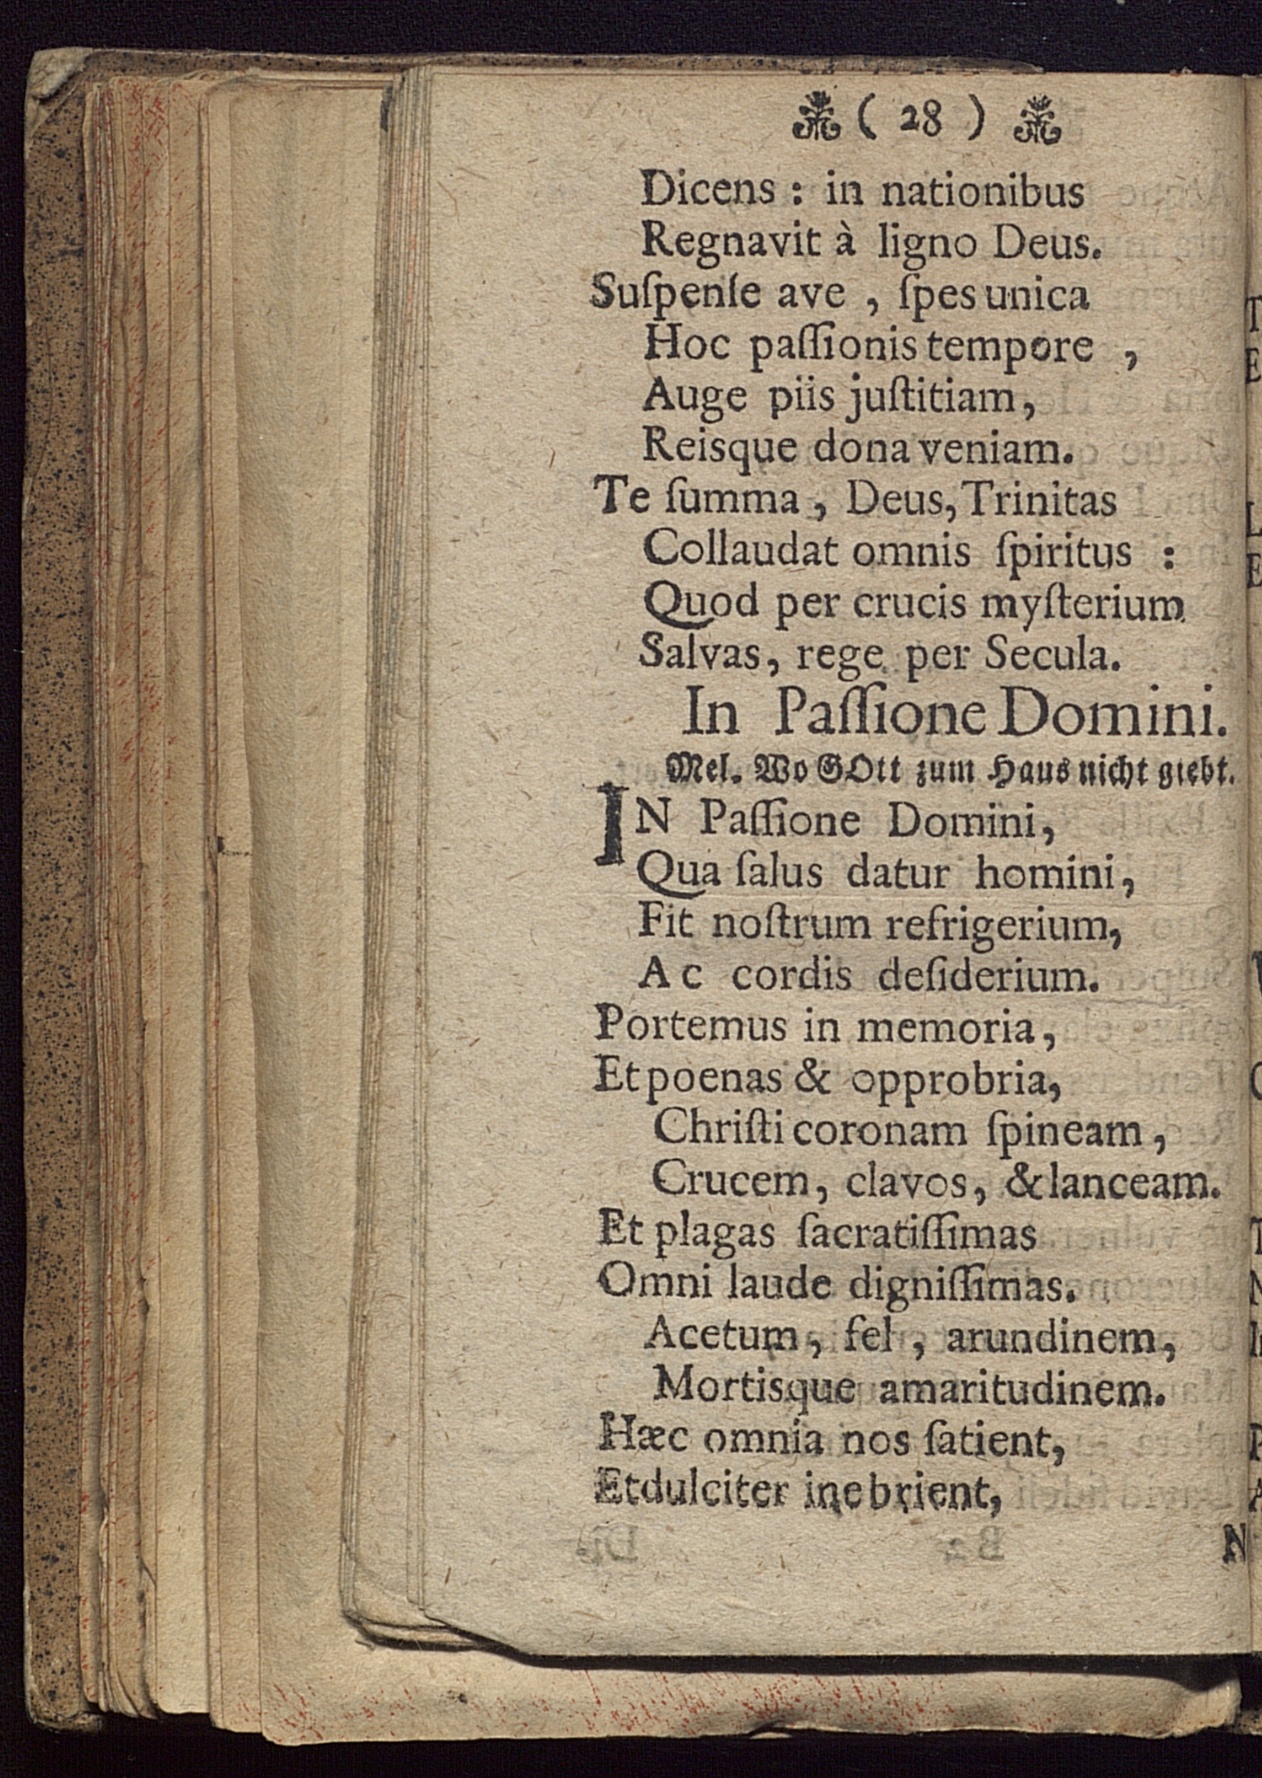 ( 28 )
Dicens : in nationibus
Regnavit à ligno Deus.
Suſpenſe ave , ſpes unica
Hoc paſſionis tempore ,
Auge piis juſtitiam,
Reisque dona veniam.
Te ſumma , Deus, Trinitas
Collaudat omnis ſpiritus :
Quod per crucis myſterium
Salvas, rege per Secula.
In Paſſione Domini.
Mel. Wo GOtt zum Haus nicht giebt.
IN Paſſione Domini,
Qua ſalus datur homini,
Fit noſtrum refrigerium,
Ac cordis deſiderium.
Portemus in memoria,
Et poenas & opprobria,
Chriſti coronam ſpineam,
Crucem, clavos, & lanceam.
Et plagas ſacratiſſimas
Omni laude digniſſimas.
Acetum, fel , arundinem,
Mortisque amaritudinem.
Hæc omnia nos ſatient,
Et dulciter inebrient,